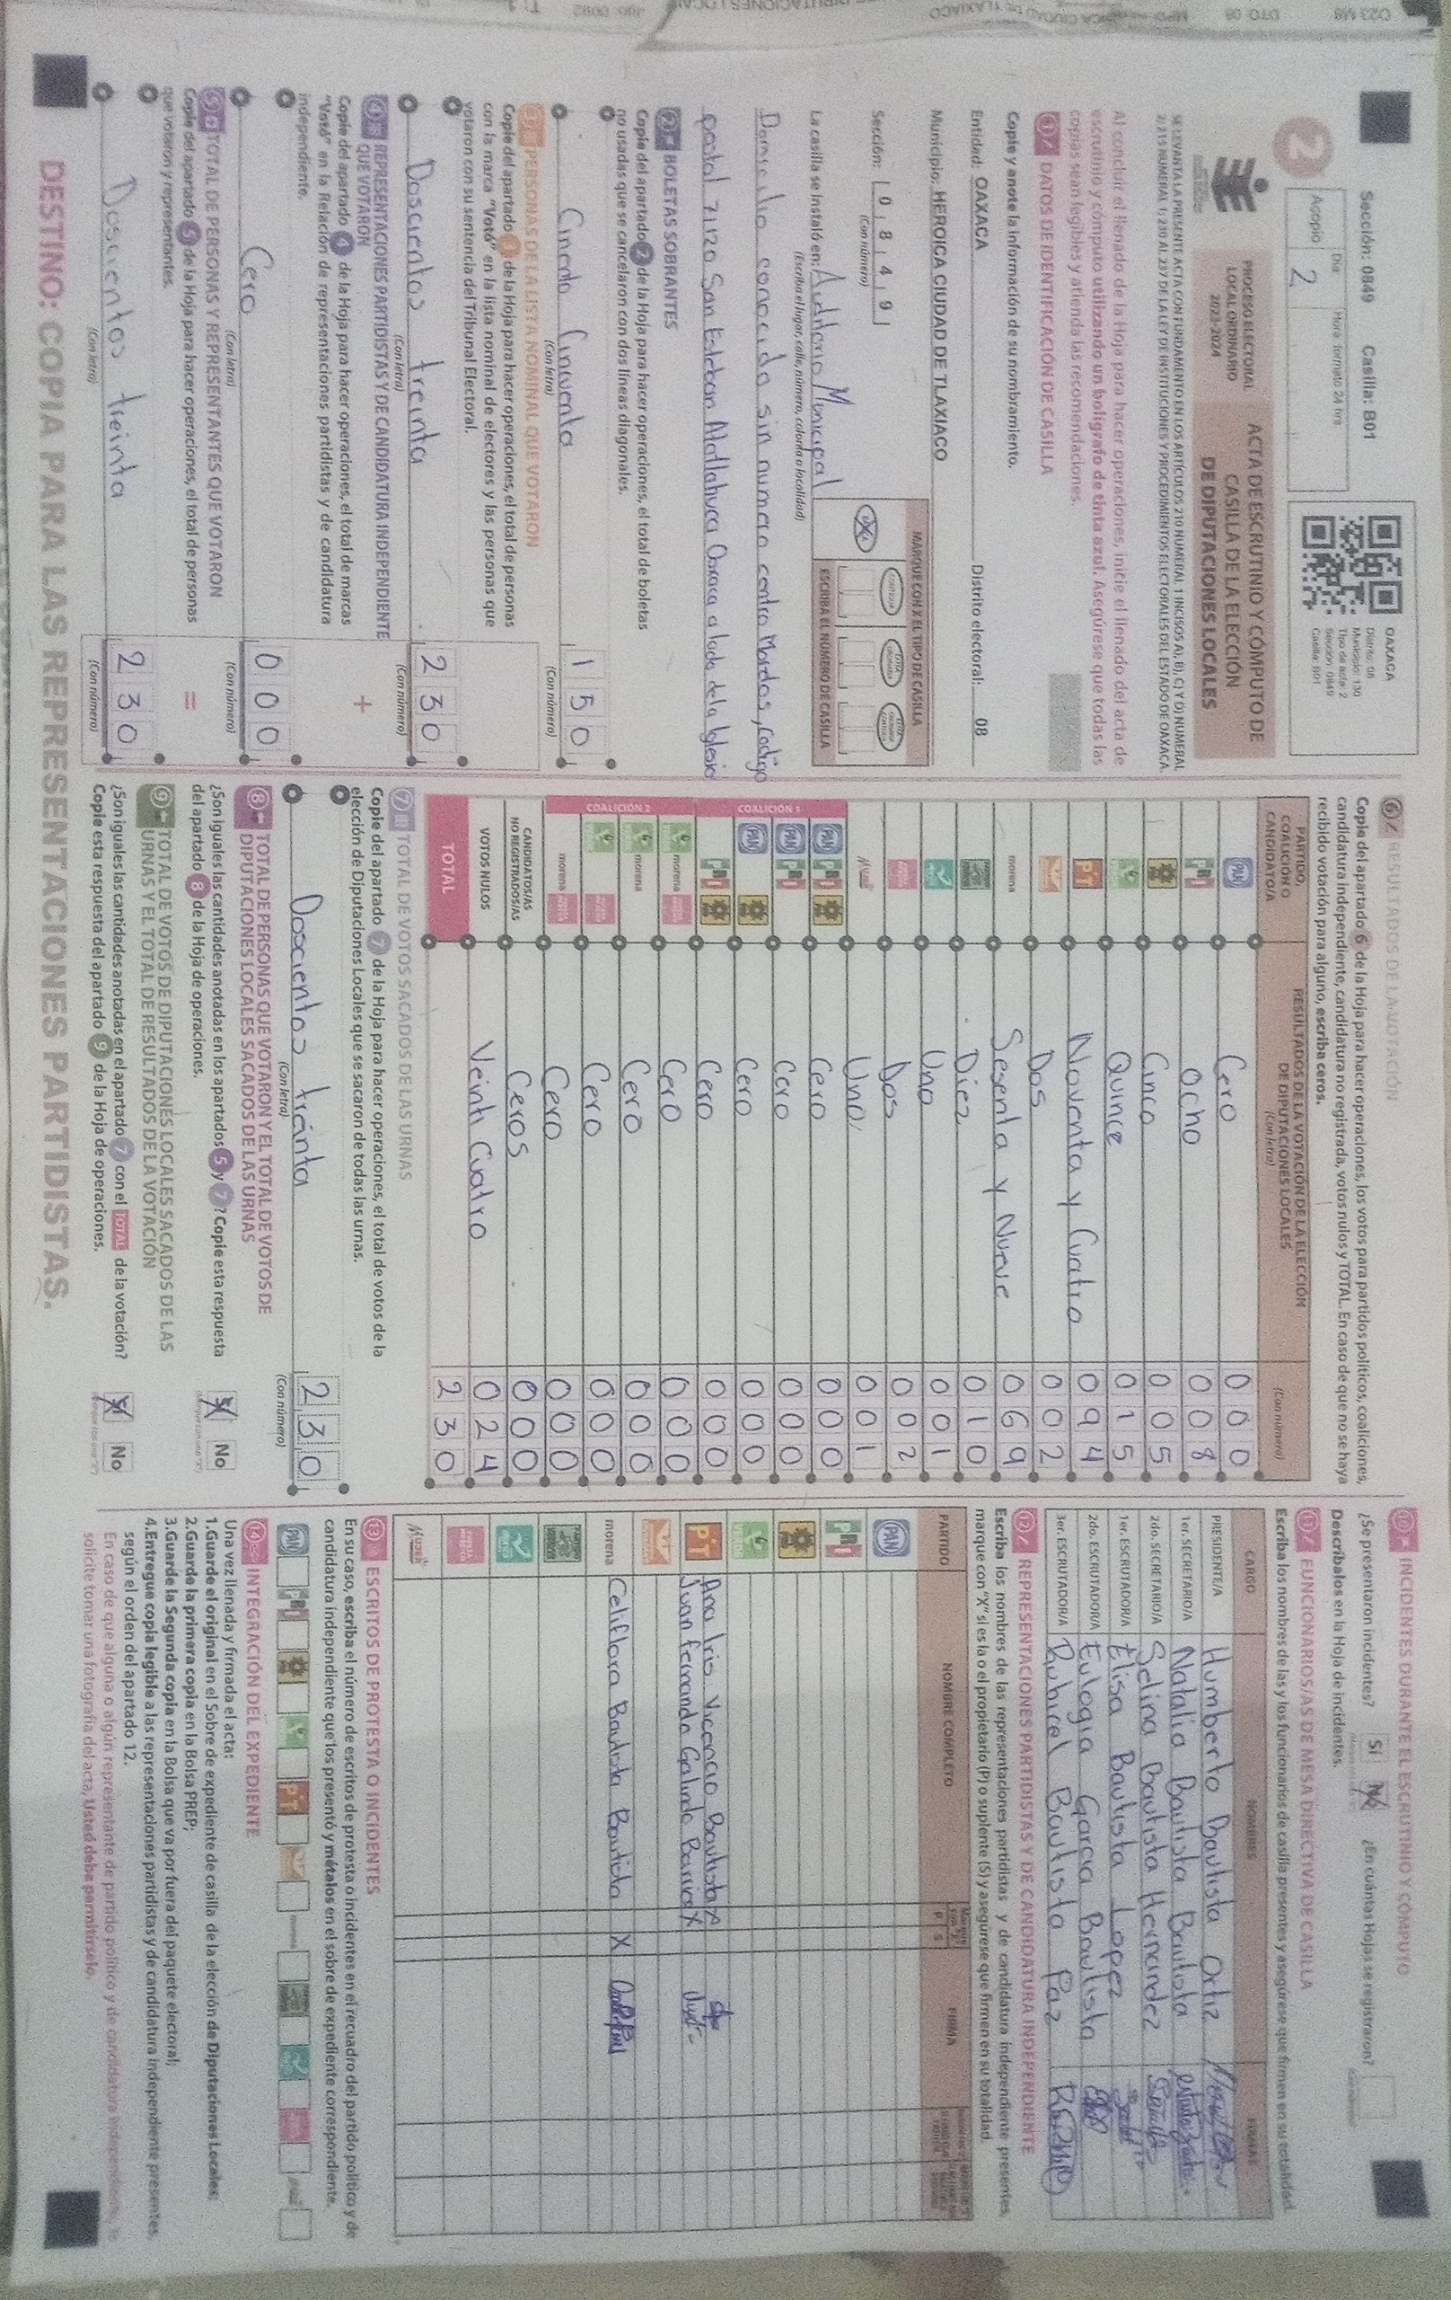 Sección: 0849 Casilla: B01
Día Hora formato 24 hrs
Acopio 2
OAXACA
Distrito: 08
Municipio: 130
Tipo de acta: 2
Sección: 0849
Casilla: B01
2
PROCESO ELECTORAL
LOCAL ORDINARIO
2023-2024
ACTA DE ESCRUTINIO Y CÓMPUTO DE
CASILLA DE LA ELECCIÓN
DE DIPUTACIONES LOCALES
SE LEVANTA LA PRESENTE ACTA CON FUNDAMENTO EN LOS ARTÍCULOS 210 NUMERAL 1 INCISOS A), B), C) Y D) NUMERAL
2; 215 NUMERAL 1; 230 AL 237 DE LA LEY DE INSTITUCIONES Y PROCEDIMIENTOS ELECTORALES DEL ESTADO DE OAXACA.
Al concluir el llenado de la Hoja para hacer operaciones, inicie el llenado del acta de
escrutinio y cómputo utilizando un bolígrafo de tinta azul. Asegúrese que todas las
copias sean legibles y atienda las recomendaciones.
1 DATOS DE IDENTIFICACIÓN DE CASILLA
Copie y anote la información de su nombramiento.
Entidad: OAXACA Distrito electoral: 08
Municipio: HEROICA CIUDAD DE TLAXIACO
Sección: 0 8 4 9
(Con número)
MARQUE CON X EL TIPO DE CASILLA
ESCRIBA EL NÚMERO DE CASILLA
La casilla se instaló en: Auditorio Municipal
(Escriba el lugar, calle, número, colonia o localidad)
Domicilio conocido sin numero centro Morelos, Codigo
postal 71120 San Esteban Atatlahuca Oaxaca a lado de la Iglesia
2 BOLETAS SOBRANTES
Copie del apartado 2 de la Hoja para hacer operaciones, el total de boletas
no usadas que se cancelaron con dos líneas diagonales.
Ciento Cincuenta 1 5 0
(Con letra) (Con número)
3 PERSONAS DE LA LISTA NOMINAL QUE VOTARON
Copie del apartado 3 de la Hoja para hacer operaciones, el total de personas
con la marca "Votó" en la lista nominal de electores y las personas que
votaron con su sentencia del Tribunal Electoral.
Doscientos treinta 2 3 0
(Con letra) (Con número)
4 REPRESENTACIONES PARTIDISTAS Y DE CANDIDATURA INDEPENDIENTE
QUE VOTARON +
Copie del apartado 4 de la Hoja para hacer operaciones, el total de marcas
"Votó" en la Relación de representaciones partidistas y de candidatura
independiente.
Cero 0 0 0
(Con letra) (Con número)
5 TOTAL DE PERSONAS Y REPRESENTANTES QUE VOTARON =
Copie del apartado 5 de la Hoja para hacer operaciones, el total de personas
que votaron y representantes.
Doscientos treinta 2 3 0
(Con letra) (Con número)
6 RESULTADOS DE LA VOTACIÓN
Copie del apartado 6 de la Hoja para hacer operaciones, los votos para partidos políticos, coaliciones,
candidatura independiente, candidatura no registrada, votos nulos y TOTAL. En caso de que no se haya
recibido votación para alguno, escriba ceros.
PARTIDO, COALICIÓN O CANDIDATO/A
RESULTADOS DE LA VOTACIÓN DE LA ELECCIÓN
DE DIPUTACIONES LOCALES
(Con letra) (Con número)
PAN Cero 0 0 0
PRI ocho 0 0 8
Cinco 0 0 5
Quince 0 1 5
PT Noventa y Cuatro 0 9 4
Dos 0 0 2
morena Sesenta y Nueve 0 6 9
Diez 0 1 0
Uno 0 0 1
Dos 0 0 2
Uno 0 0 1
COALICIÓN 1
PAN PRI Cero 0 0 0
PAN PRI Cero 0 0 0
PAN Cero 0 0 0
PRI Cero 0 0 0
COALICIÓN 2
morena Cero 0 0 0
morena Cero 0 0 0
Cero 0 0 0
morena Cero 0 0 0
CANDIDATOS/AS NO REGISTRADOS/AS Ceros 0 0 0
VOTOS NULOS Veinti Cuatro 0 2 4
TOTAL 2 3 0
7 TOTAL DE VOTOS SACADOS DE LAS URNAS
Copie del apartado 7 de la Hoja para hacer operaciones, el total de votos de la
elección de Diputaciones Locales que se sacaron de todas las urnas.
Doscientos treinta 2 3 0
(Con letra) (Con número)
8 TOTAL DE PERSONAS QUE VOTARON Y EL TOTAL DE VOTOS DE
DIPUTACIONES LOCALES SACADOS DE LAS URNAS
¿Son iguales las cantidades anotadas en los apartados 5 y 7? Copie esta respuesta
del apartado 8 de la Hoja de operaciones.
Sí No
9 TOTAL DE VOTOS DE DIPUTACIONES LOCALES SACADOS DE LAS
URNAS Y EL TOTAL DE RESULTADOS DE LA VOTACIÓN
¿Son iguales las cantidades anotadas en el apartado 7 con el TOTAL de la votación?
Copie esta respuesta del apartado 9 de la Hoja de operaciones.
Sí No
10 INCIDENTES DURANTE EL ESCRUTINIO Y CÓMPUTO
¿Se presentaron incidentes? Sí No ¿En cuántas Hojas se registraron?
Descríbalos en la Hoja de incidentes.
11 FUNCIONARIOS/AS DE MESA DIRECTIVA DE CASILLA
Escriba los nombres de las y los funcionarios de casilla presentes y asegúrese que firmen en su totalidad.
CARGO NOMBRES FIRMAS
PRESIDENTE/A Humberto Bautista Ortiz
1er. SECRETARIO/A Natalia Bautista Bautista
2do. SECRETARIO/A Selina Bautista Hernandez
1er. ESCRUTADOR/A Elisa Bautista Lopez
2do. ESCRUTADOR/A Eulogia Garcia Bautista
3er. ESCRUTADOR/A Rubicel Bautista Paz
12 REPRESENTACIONES PARTIDISTAS Y DE CANDIDATURA INDEPENDIENTE
Escriba los nombres de las representaciones partidistas y de candidatura independiente presentes,
marque con "X" si es la o el propietario (P) o suplente (S) y asegúrese que firmen en su totalidad.
PARTIDO NOMBRE COMPLETO P S FIRMA
PAN
PRI
PT Ana Iris Vicencio Bautista X
Juan Fernando Galindo Barrios X
morena Celiflora Bautista Bautista X
13 ESCRITOS DE PROTESTA O INCIDENTES
En su caso, escriba el número de escritos de protesta o incidentes en el recuadro del partido político y de
candidatura independiente que los presentó y métalos en el sobre de expediente correspondiente.
PAN PRI PT morena
14 INTEGRACIÓN DEL EXPEDIENTE
Una vez llenada y firmada el acta:
1.Guarde el original en el Sobre de expediente de casilla de la elección de Diputaciones Locales;
2.Guarde la primera copia en la Bolsa PREP;
3.Guarde la Segunda copia en la Bolsa que va por fuera del paquete electoral;
4.Entregue copia legible a las representaciones partidistas y de candidatura independiente presentes,
según el orden del apartado 12.
En caso de que alguna o algún representante de partido político y de candidatura independiente, le
solicite tomar una fotografía del acta, Usted debe permitírselo.
DESTINO: COPIA PARA LAS REPRESENTACIONES PARTIDISTAS.